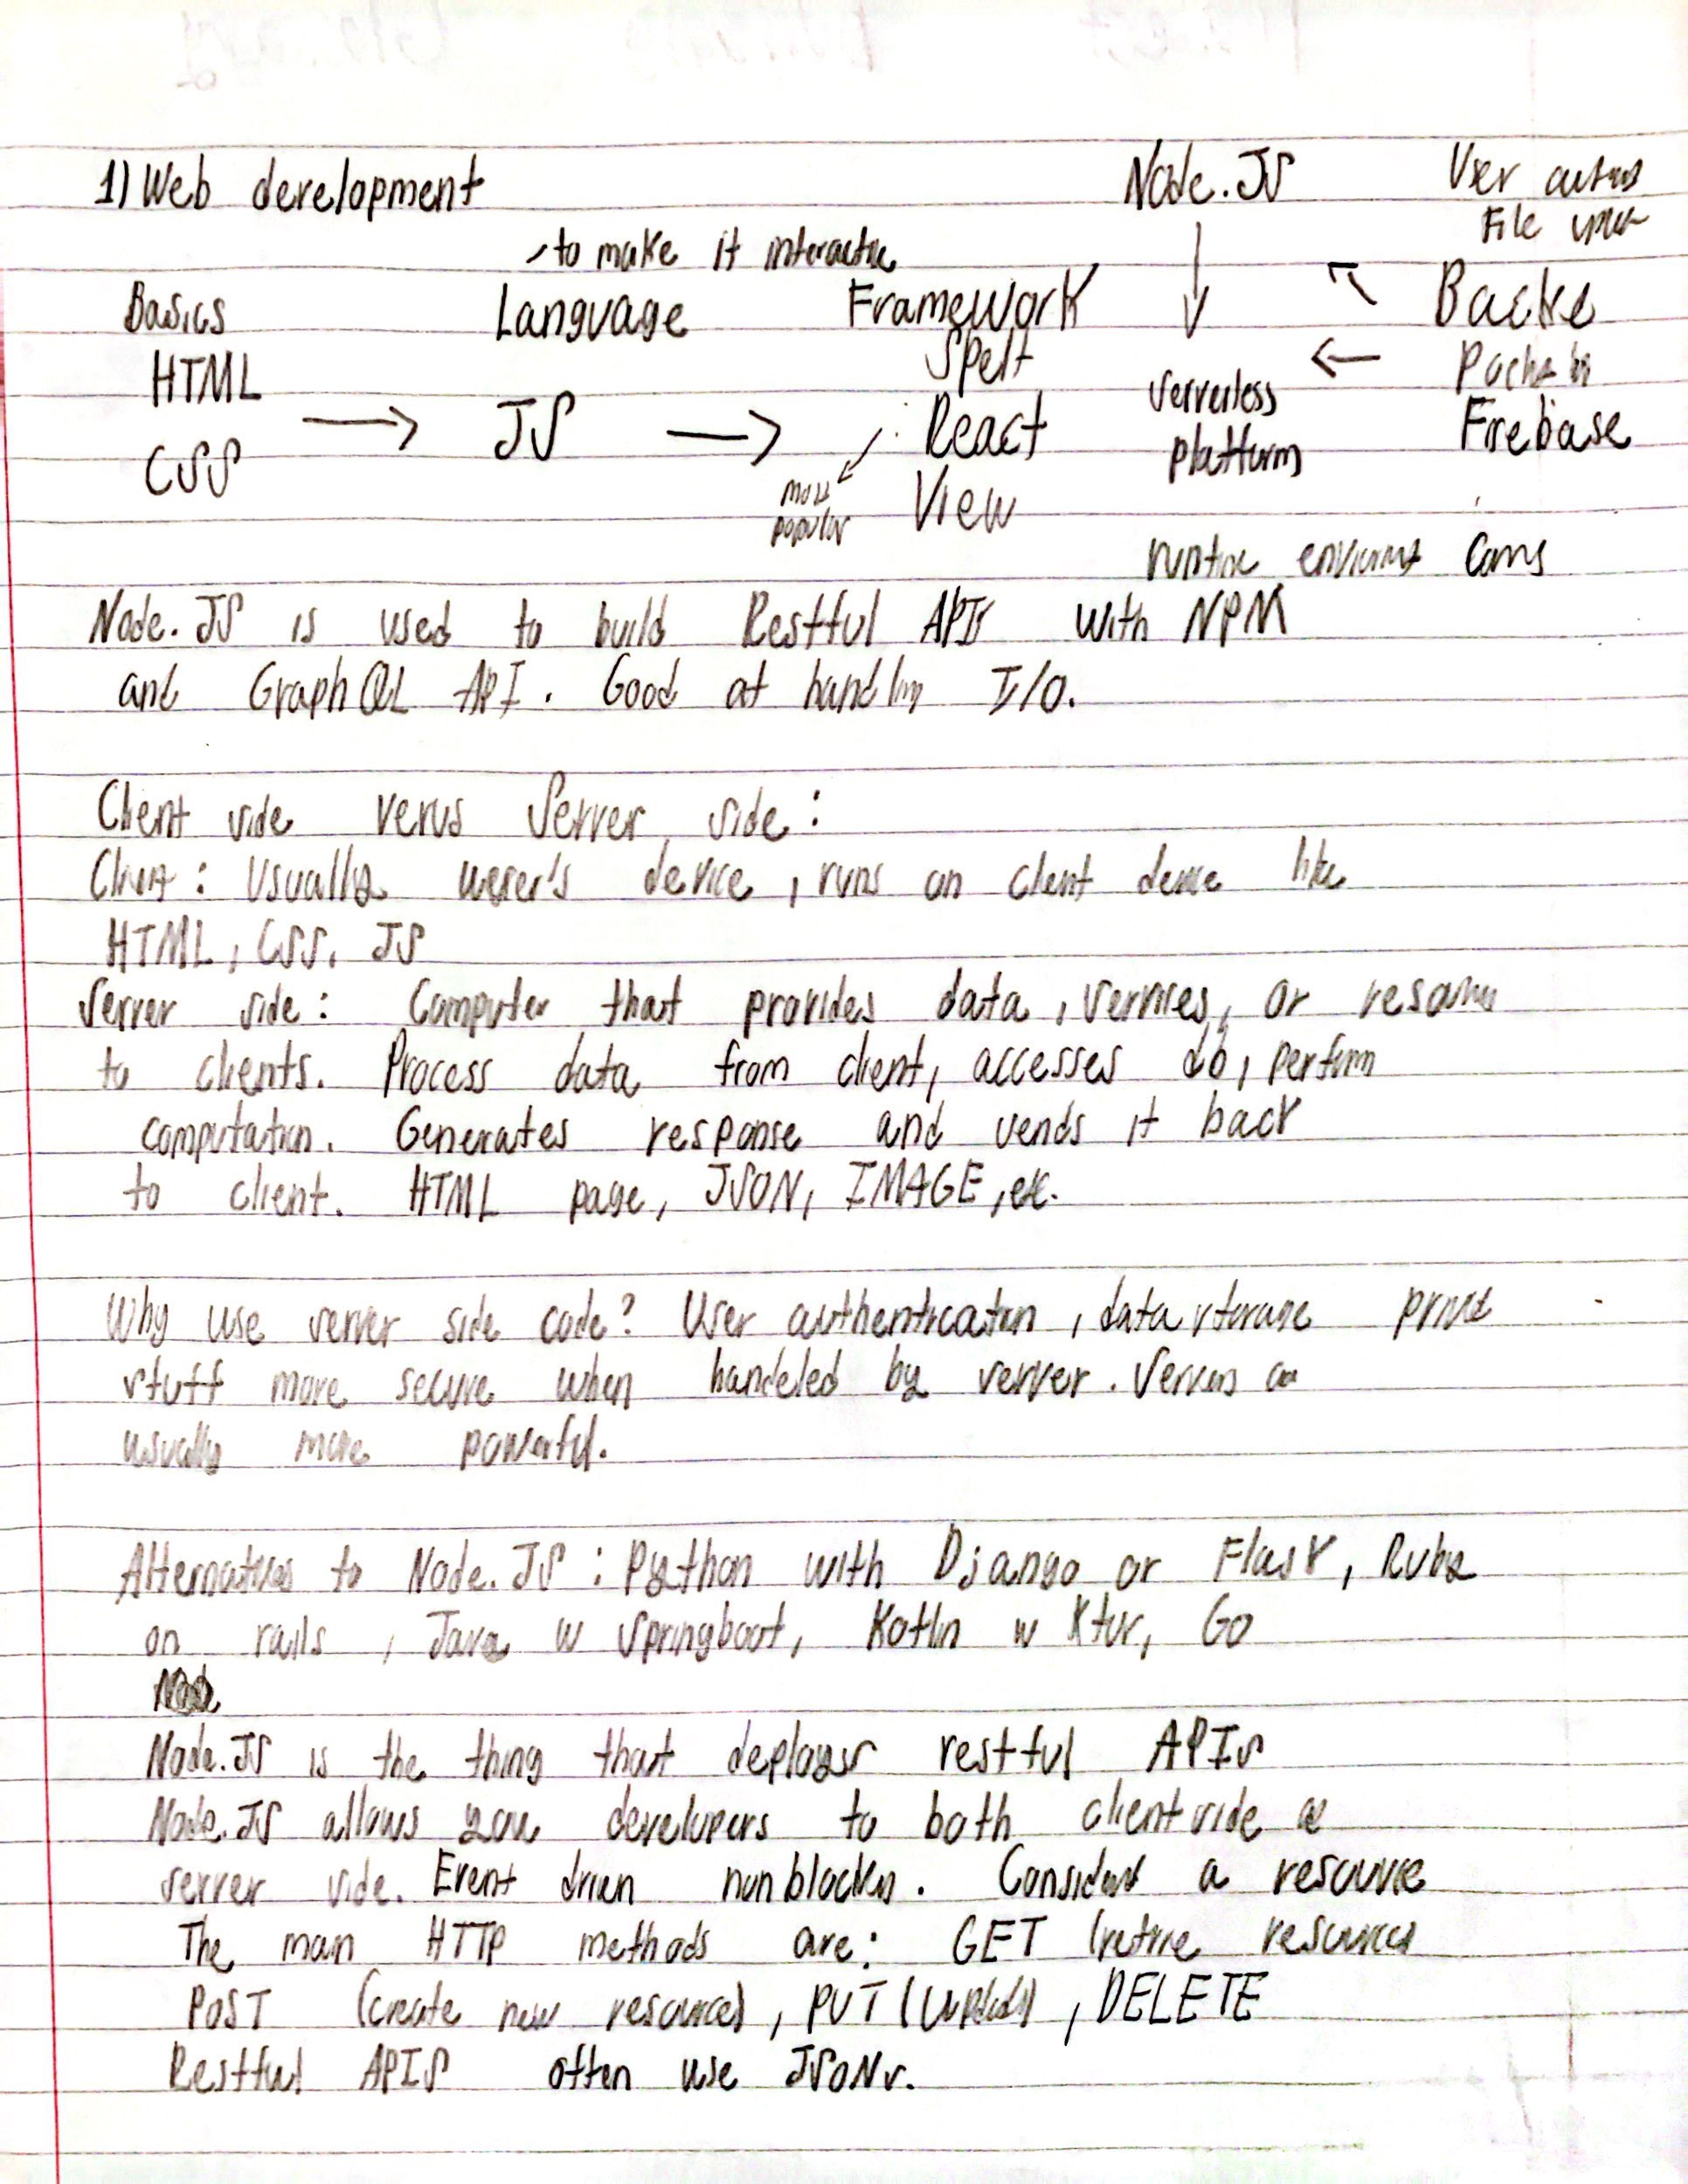 1) Web development
Node.JS
User
File
to make it interactive
Basics
Language
Framework
HTML
Spelt
CSS
JS
React
serverless
platform
Firebase
most
popular
View
Node.JS is used to build Restful APIs with NPM
and GraphQL API. Good at handlin I/O.
Client side verus Server side:
Client: Usually useer's device, runs on client device like
HTML, CSS, JS
Server side: Computer that provides data, services, or
to clients. Process data from client, accesses db, perform
computation. Generates response and sends it back
to client. HTML page, JSON, IMAGE, etc.
Why use server side code? User authentication, data storage
stuff more secure when handeled by server. Servers
usually more powerful.
Alternatives to Node.JS: Python with Django or Flask, Ruby
on rails, Java w springboot, Kotlin w Ktor, Go
Node.JS is the thing that deploys restful APIs
Node.JS allows you developers to both client side
server side. Event nonblocking. a resource
The main HTTP methods are: GET (
POST (create new resource), PUT (, DELETE
Restful APIS often use JSONs.